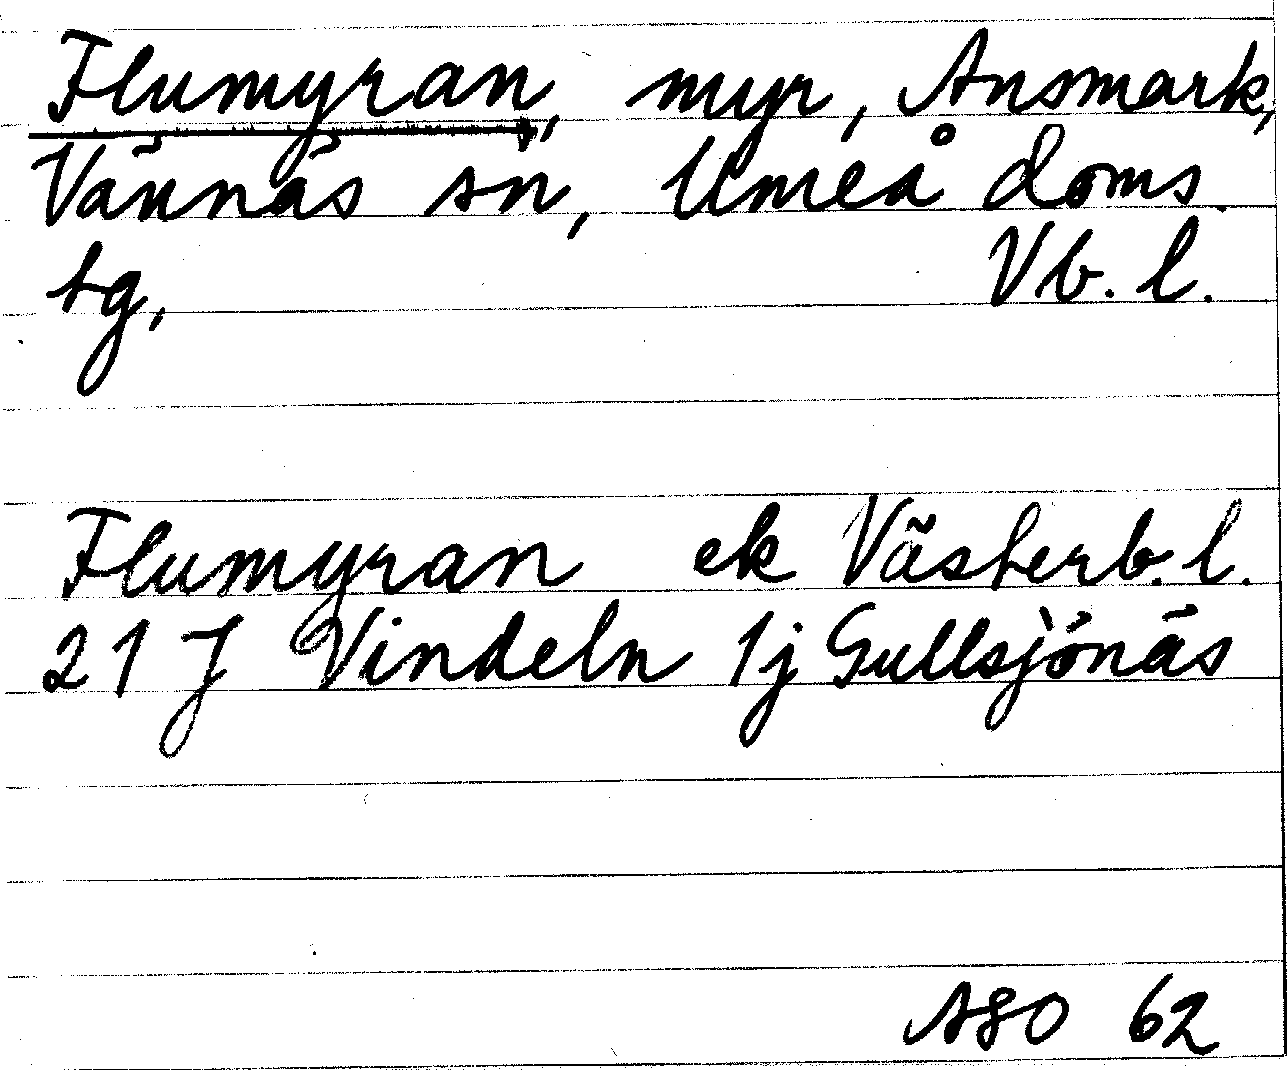 Flumyran, myr, Ansmark,
Vännäs sn, Umeå doms.
tg, Vb. l.
Flumyran ek Västerb. l.
21 J Vindeln 1j Gullsjönäs
ASO 62